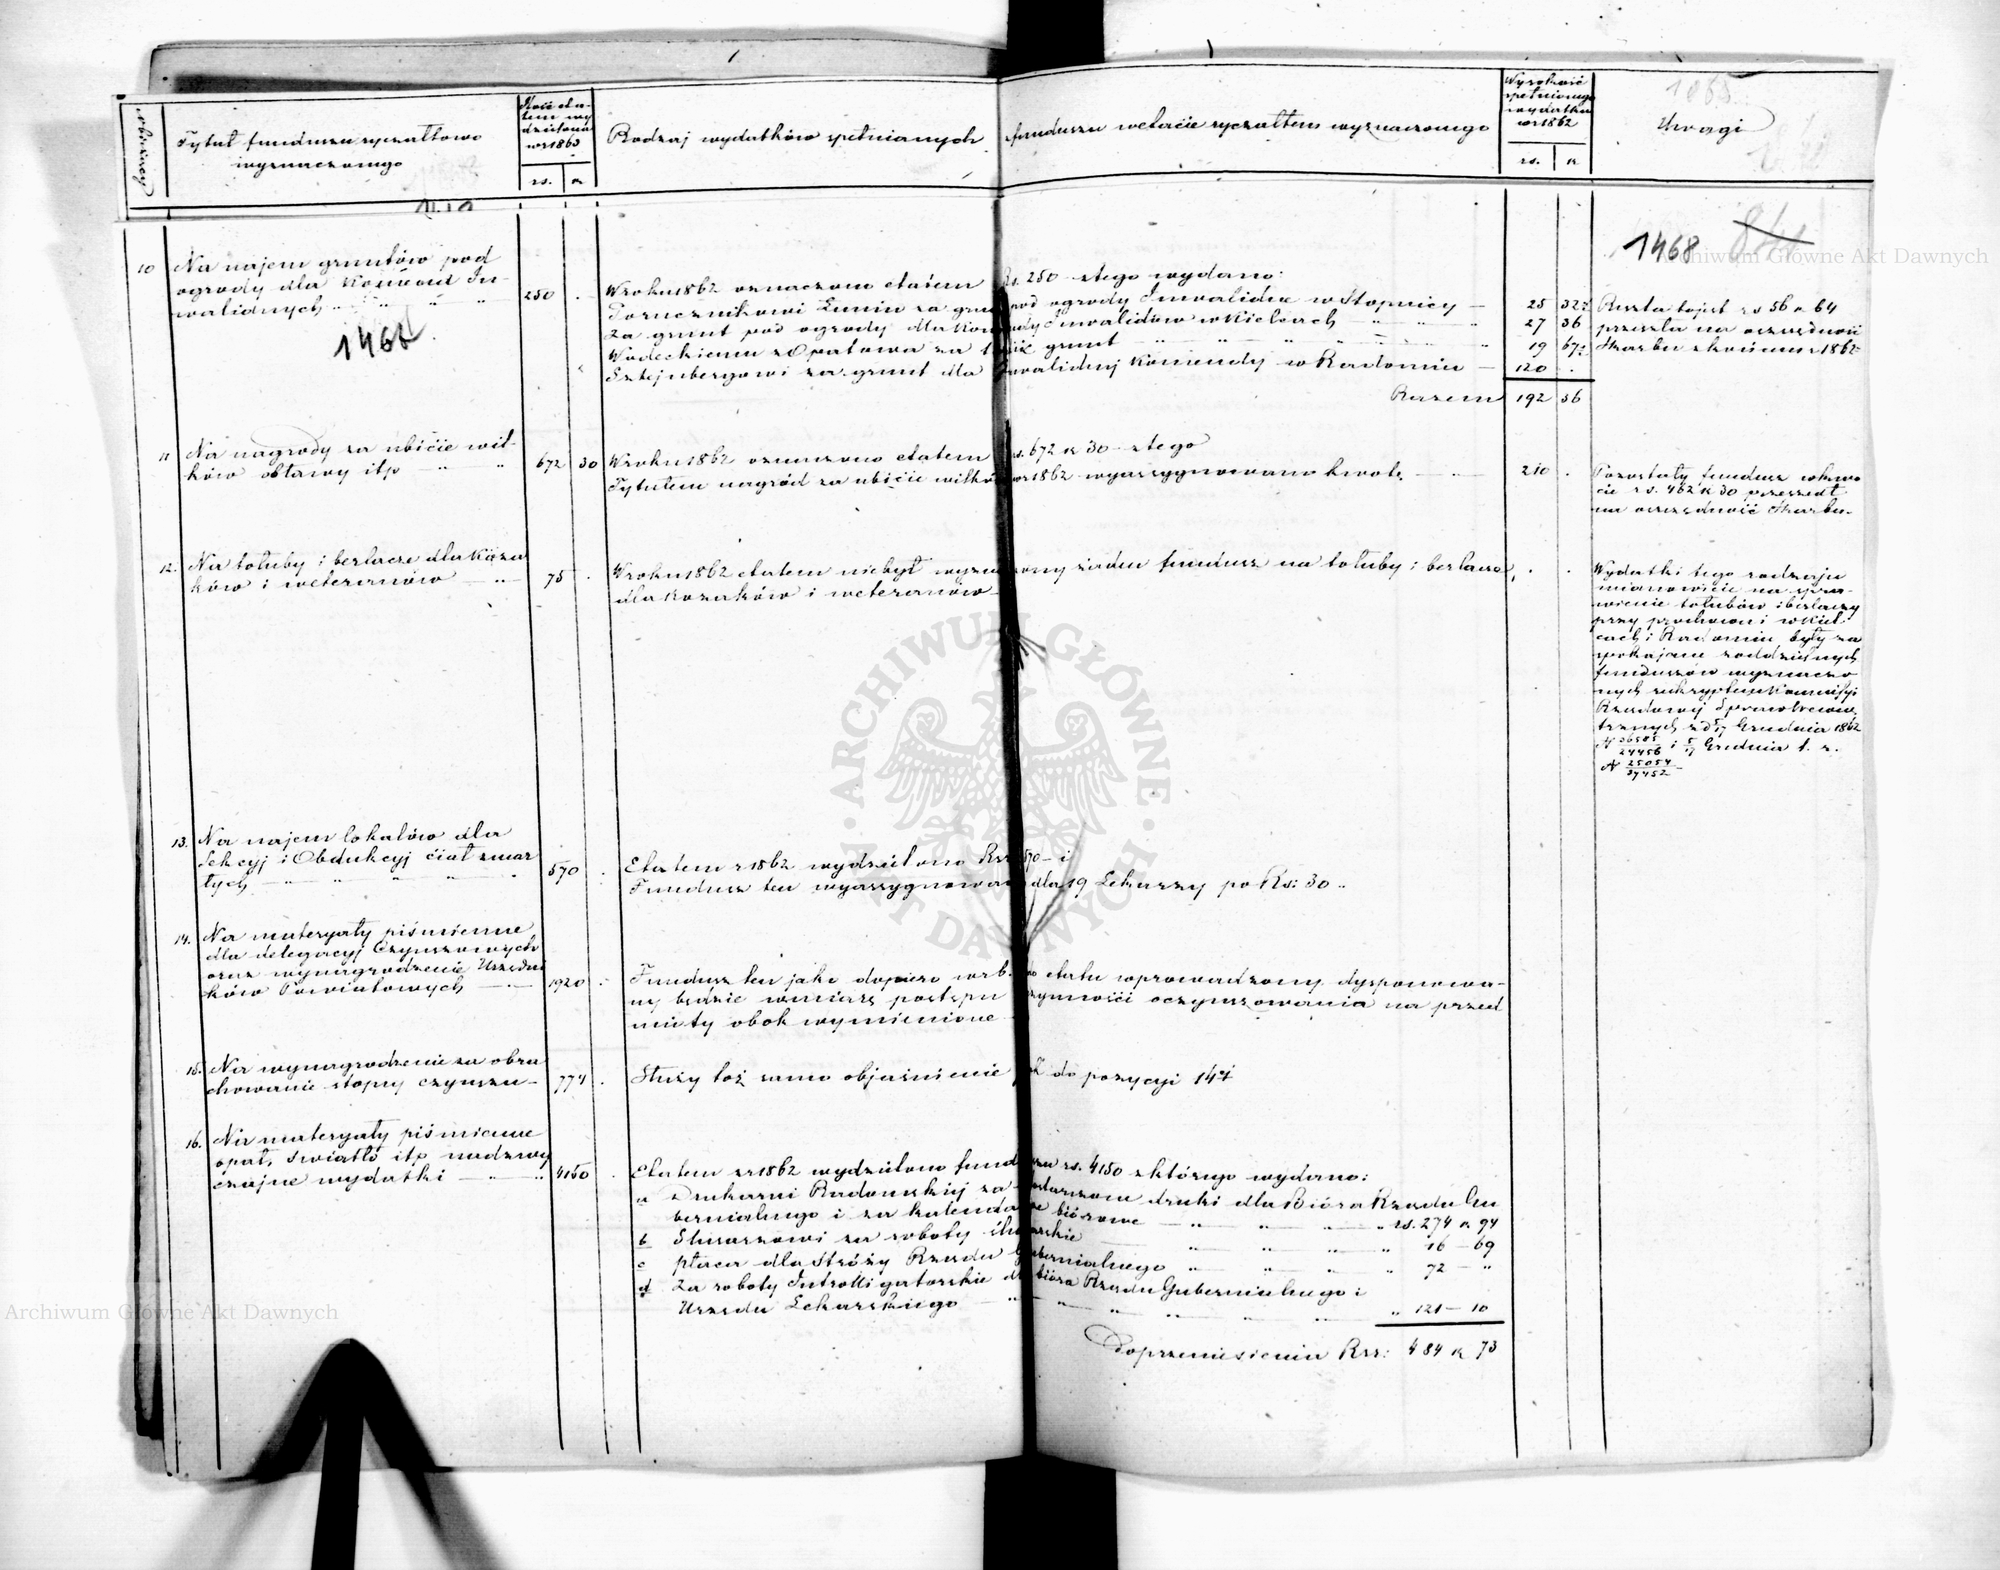 Tytuł funduszu ryczałtowo
wyznaczonego
rs. k
Rodzaj wydatków spełnianych funduszu w etacie ryczałtem wyznaczonego
Wysokość
spełnionego
wydatku
w r 1862
rs. k
Uwagi
1468
Archiwum Główne Akt Dawnych
10 Na najem gruntów pod
ogrody dla Komend In-
walidnych
250
1468
W roku 1862 oznaczono etatem Rs. 250 z tego wydano:
Porucznikowi Łunin za grunt pod ogrody Inwalidne w Stopnicy 25 32½
Za grunt pod ogrody dla Komendy Inwalidów w Kielcach 27 56
Wodeckiemu z Opatowa za tenże grunt 19 67½
Sztejnbergowi za grunt dla Inwalidnej Komendy w Radomiu 120
Razem 192 56
Reszta to jest rs 56 k 64
przeszła na oszczędność
Skarbu z końcem r 1862
11 Na nagrody za ubicie wil-
ków obławy itp
672 30
W roku 1862 oznaczono etatem rs. 672 k 30 z tego
Tytułem nagród za ubicie wilków w r 1862 wyassygnowano kwotę 210
Pozostały fundusz w kwo
cie rs. 462 k 30 przeszedł
na oszczędność Skarbu
12. Na tołuby i berlacze dla Koza
ków i weteranów
75
W roku 1862 etatem nie był wyznaczony żaden fundusz na tołuby i berlacze
dla Kozaków i weteranów
Wydatki tego rodzaju
mianowicie na spra-
wienie tołubów i berlaczy
przy prochowni w Kiel
cach i Radomiu były za
spokajane z oddzielnych
funduszów wyznaczo
nych reskryptem Kommissyi
Rządowej Spraw Wewnę
trznych z d 5/17 Grudnia 1862
N 36585/24456 i 5/17 Grudnia t. r.
N 25054/37452
13. Na najem lokalów dla
Sekcyj i Obdukcyj ciał zmar
łych
570
Etatem r 1862 wydzielono Rsr 570 i
Fundusz ten wyassygnowano dla 19 Lekarzy po Rs: 30
14. Na materyały piśmienne
dla delegacyj Czynszowych
oraz wynagrodzenie Urzędni
ków Powiatowych
1920
Fundusz ten jako dopiero w r b. do etatu wprowadzony dysponowa-
ny będzie w miarę postępu czynności oczynszowania na przed
mioty obok wymienione
15. Na wynagrodzenie za obra
chowanie stopy czynszu
774
Służy toż samo objaśnienie jak do pozycyi 14ej
16. Na materyały piśmienne
opał, światło itp nadzwy
czajne wydatki
4150
Etatem z r 1862 wydzielono funduszu rs. 4150 z którego wydano:
a Drukarni Radomskiej za dostarczone druki dla Bióra Rządu Gu
bernialnego i za kalendarze biórowe rs. 274 k 94
b Ślusarzowi za roboty ślusarskie 16 – 69
c płaca dla Stróży Rządu Gubernialnego 72 –
d Za roboty Introligatorskie dla bióra Rządu Gubernialnego i
Urzędu Lekarskiego 121 – 10
Do przeniesienia Rsr: 484 k 73
ARCHIWUM GŁÓWNE AKT DAWNYCH
Archiwum Główne Akt Dawnych